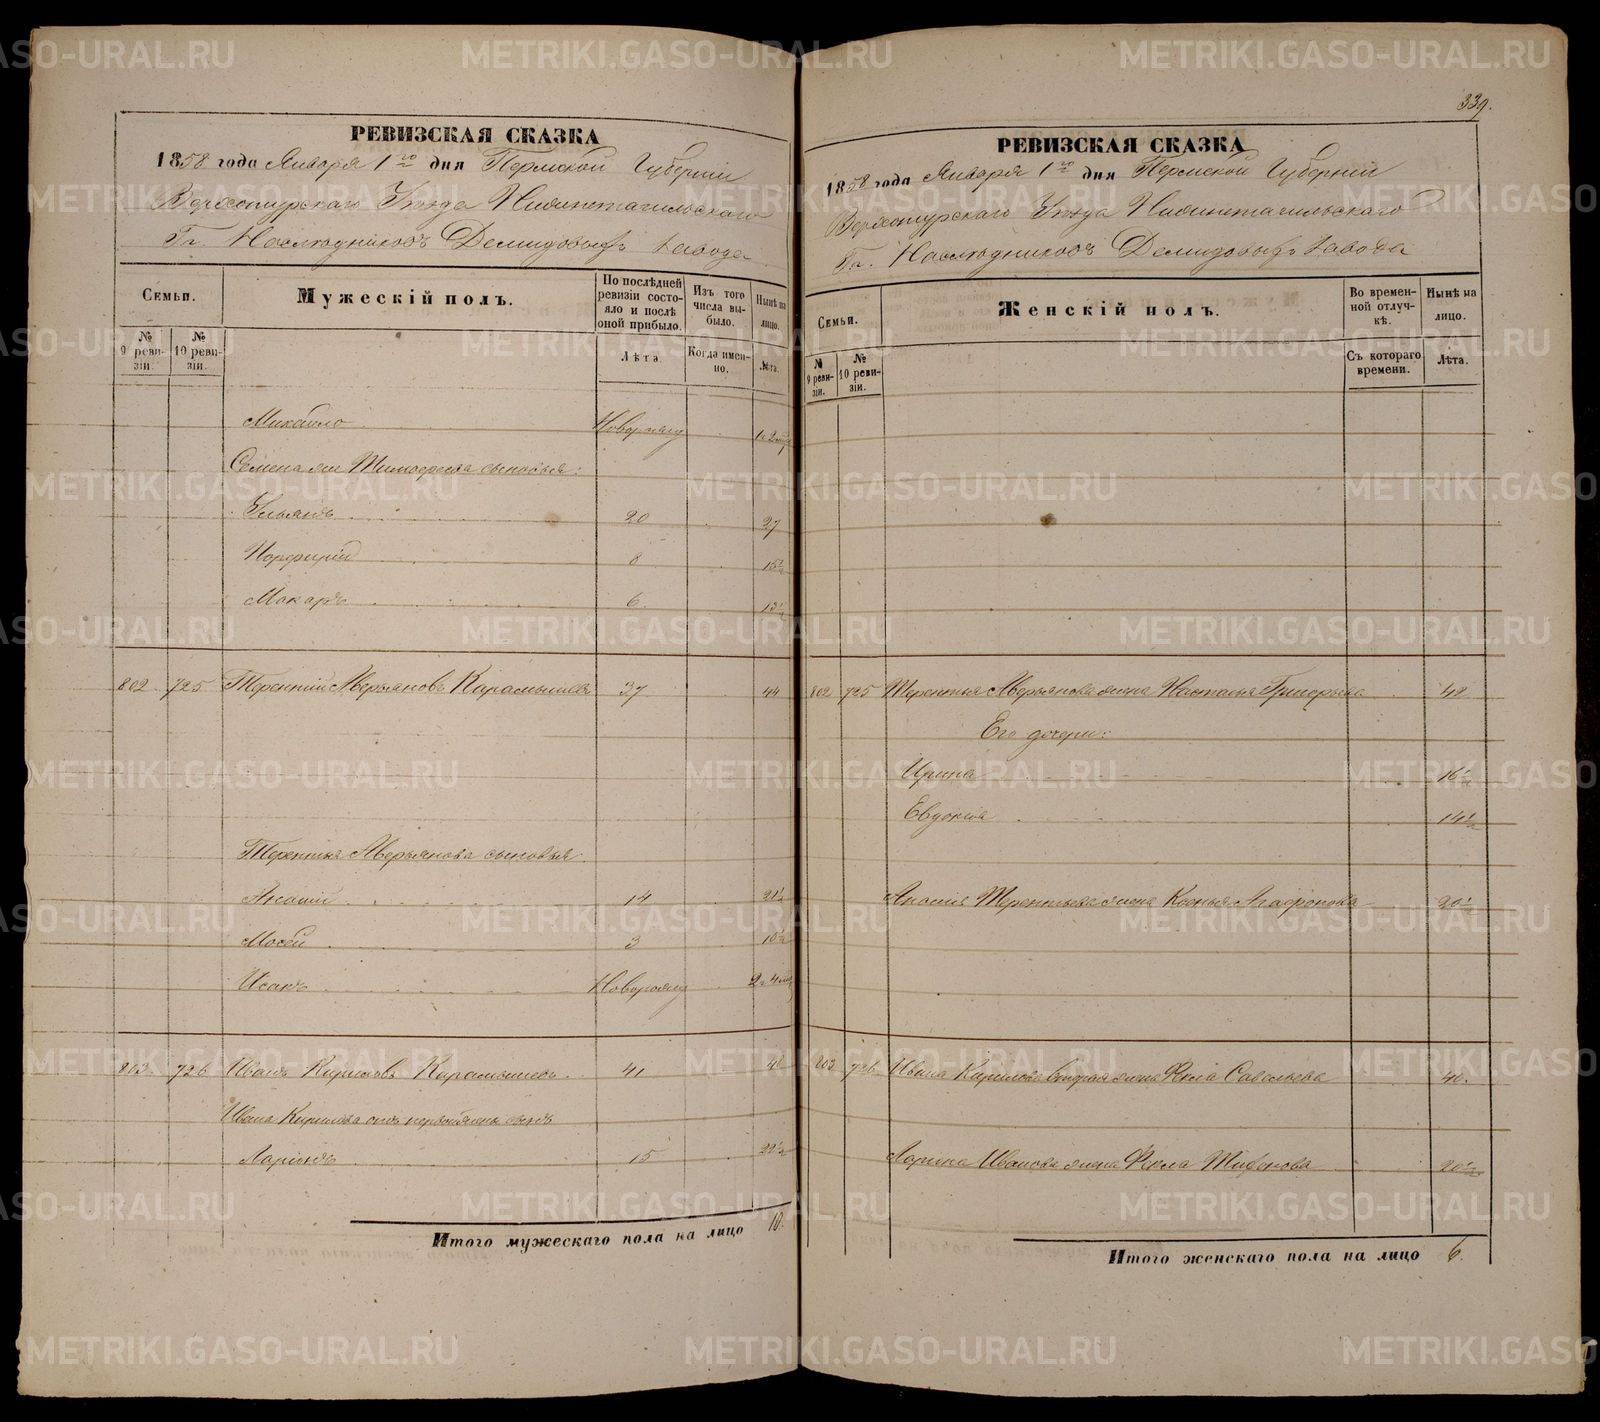 339.
РЕВИЗСКАЯ СКАЗКА
1858 года Января 1го дня Пермской Губерніи
Верхотурскаго Уѣзда Нижнетагильскаго
Гг. Наслѣдниковъ Демидовыхъ завода
Семьи.
Мужескій полъ.
По послѣдней ревизіи состояло и послѣ оной прибыло.
Изъ того числа выбыло.
Нынѣ на лицо.
№ 9 ревизіи.
№ 10 ревизіи.
Лѣта.
Когда именно.
Лѣта.
Михайло Новорожд
Семена Тимофеева сыновья:
Ульянъ 20 27
Порфирій 8 15½
Макаръ 6 13½
802 725 Терентій Аверьяновъ Карамышевъ 37 44
Терентья Аверьянова сыновья
Анѳимъ 14 21½
Мосей 3 10½
Исакъ Новорожд 2 4 мѣс
803 726 Иванъ Кириловъ Карамышевъ 41 48
Ивана Кирилова отъ первой жены сынъ
Ларіонъ 15 22½
Итого мужескаго пола на лицо 10.
РЕВИЗСКАЯ СКАЗКА
1858 года Января 1го дня Пермской Губерніи
Верхотурскаго Уѣзда Нижнетагильскаго
Гг. Наслѣдниковъ Демидовыхъ завода
Семьи.
Женскій полъ.
Во временной отлучкѣ.
Нынѣ на лицо.
№ 9 ревизіи.
№ 10 ревизіи.
Съ котораго времени.
Лѣта.
802 725 Терентья Аверьянова жена Настасья Григорьева 48
Его дочери:
Ирина 16½
Евдокія 14½
Терентьева жена Ксенья Агафонова 20½
803 726 Ивана Кирилова вторая жена Фекла Савельева 40.
Ларіона Иванова жена Фекла 20½
Итого женскаго пола на лицо 6.
METRIKI.GASO-URAL.RU